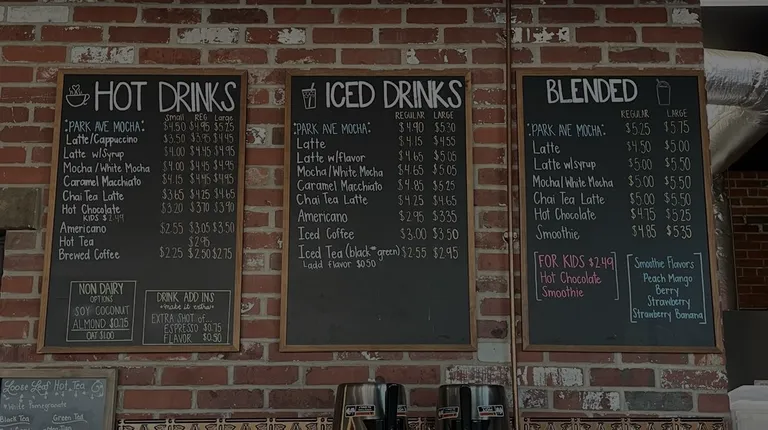 HOT DRINKS
Small REG Large
PARK AVE MOCHA: $4.50 $4.95 $5.25
Latte/Cappuccino $3.50 $3.95 $4.45
Latte w/Syrup $4.00 $4.45 $4.95
Mocha/White Mocha $4.00 $4.45 $4.95
Caramel Macchiato $4.15 $4.45
Chai Tea Latte $3.65 $4.25 $4.65
Hot Chocolate $3.20 $3.70 $3.90
KIDS $2.49
Americano $2.55 $3.05 $3.50
Hot Tea $2.95
Brewed Coffee $2.25 $2.50 $2.75
NON DAIRY
OPTIONS
SOY COCONUT
ALMOND $0.75
OAT $1.00
DRINK ADD INS
make it extra
EXTRA SHOT of...
ESPRESSO $0.75
FLAVOR $0.50
ICED DRINKS
REGULAR LARGE
PARK AVE MOCHA: $4.90 $5.30
Latte $4.15 $4.55
Latte w/Flavor $4.65 $5.05
Mocha/White Mocha $4.65 $5.05
Caramel Macchiato $4.85 $5.25
Chai Tea Latte $4.25 $4.65
Americano $2.95 $3.35
Iced Coffee $3.00 $3.50
Iced Tea (black*green) $2.55 $2.95
add flavor $0.50
BLENDED
REGULAR LARGE
PARK AVE MOCHA: $5.25 $5.75
Latte $4.50 $5.00
Latte w/syrup $5.00 $5.50
Mocha/White Mocha $5.00 $5.50
Chai Tea Latte $5.00 $5.50
Hot Chocolate $4.75 $5.25
Smoothie $4.85 $5.35
FOR KIDS $2.49
Hot Chocolate
Smoothie
Smoothie Flavors
Peach Mango
Berry
Strawberry
Strawberry Banana
Loose Leaf Hot Tea
White Pomegranate
Black Tea Green Tea